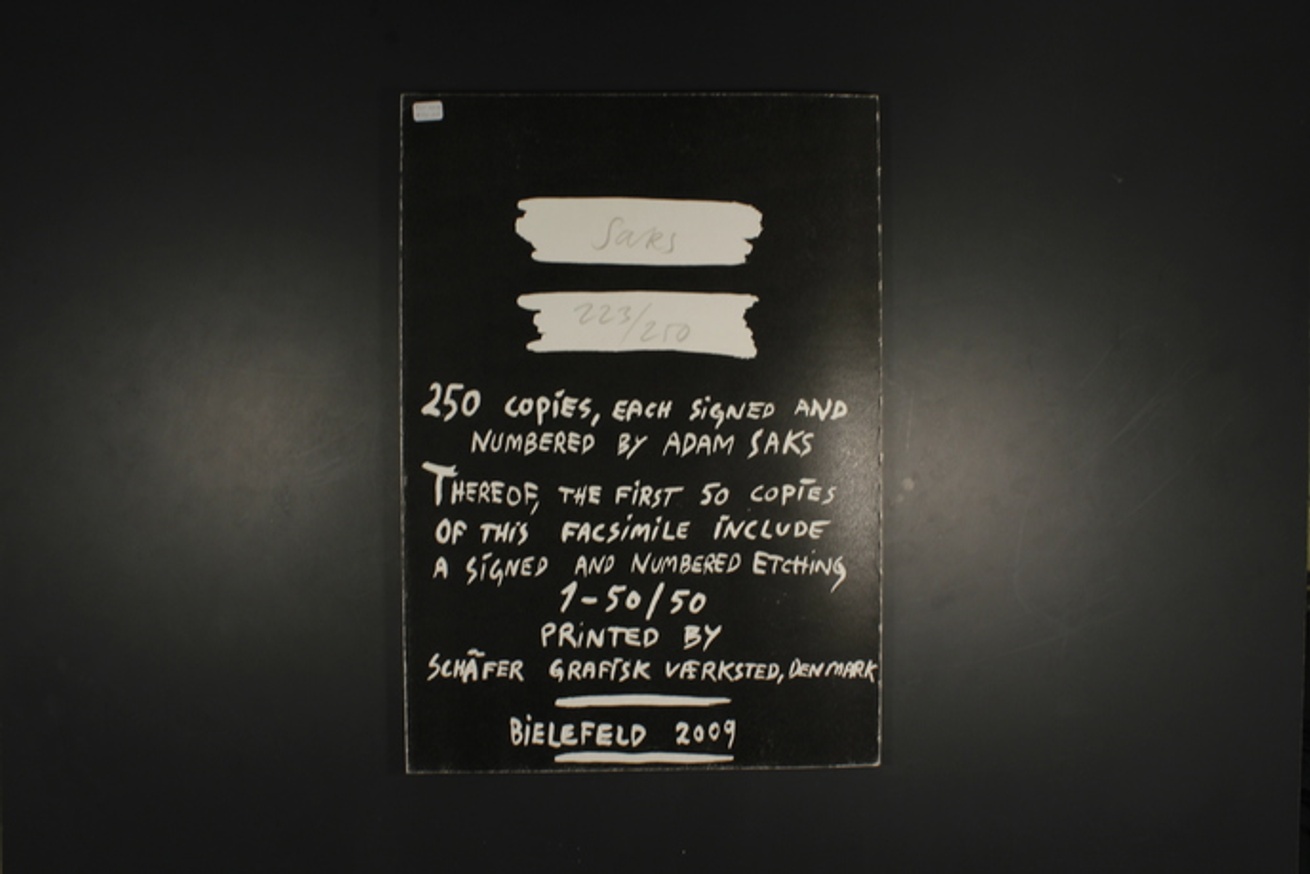 Saks
223/250
250 COPIES, EACH SIGNED AND
NUMBERED BY ADAM SAKS
THEREOF, THE FIRST 50 COPIES
OF THIS FACSIMILE INCLUDE
A SIGNED AND NUMBERED ETCHING
1-50/50
PRINTED BY
SCHÄFER GRAFISK VÆRKSTED, DENMARK
BIELEFELD 2009